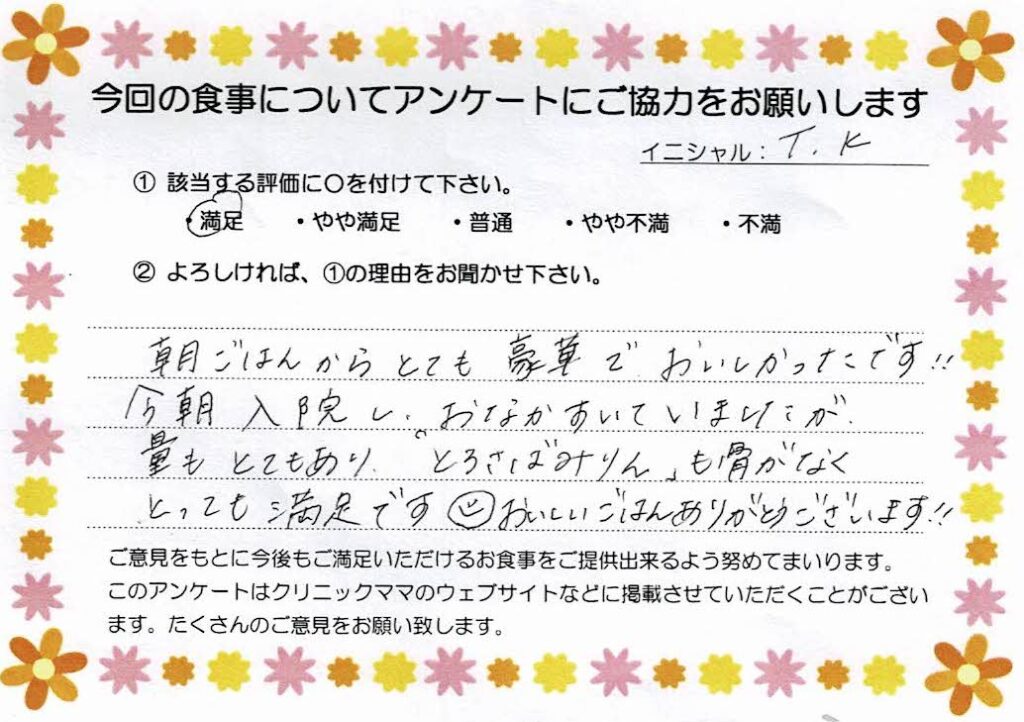 今回の食事についてアンケートにご協力をお願いします
イニシャル：T.K
① 該当する評価に○を付けて下さい。
・満足 ・やや満足 ・普通 ・やや不満 ・不満
② よろしければ、①の理由をお聞かせ下さい。
朝ごはんからとても豪華でおいしかったです!!
今朝入院し、おなかすいていましたが、
量もとてもあり、「とろさばみりん」も骨がなく
とっても満足です おいしいごはんありがとうございます!!
ご意見をもとに今後もご満足いただけるお食事をご提供出来るよう努めてまいります。
このアンケートはクリニックママのウェブサイトなどに掲載させていただくことがござい
ます。たくさんのご意見をお願い致します。